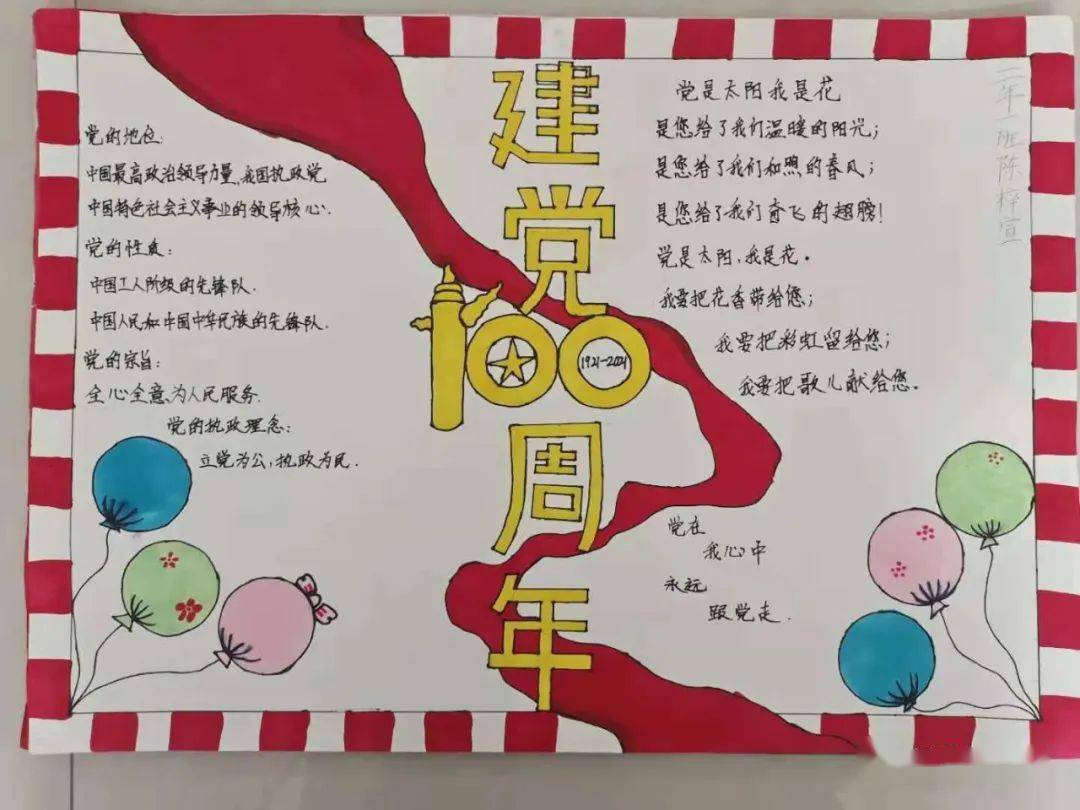 党的地位:
中国最高政治领导力量、我国执政党
中国特色社会主义事业的领导核心.
党的性质:
中国工人阶级的先锋队.
中国人民和中国中华民族的先锋队.
党的宗旨:
全心全意为人民服务.
党的执政理念:
立党为公,执政为民.
建党
100
1921-2021
周年
党是太阳我是花
是您给了我们温暖的阳光;
是您给了我们和煦的春风;
是您给了我们奋飞的翅膀!
党是太阳,我是花。
我要把花香带给您;
我要把彩虹留给您;
我要把歌儿献给您。
党在
我心中
永远
跟党走.
二年二班陈梓宣